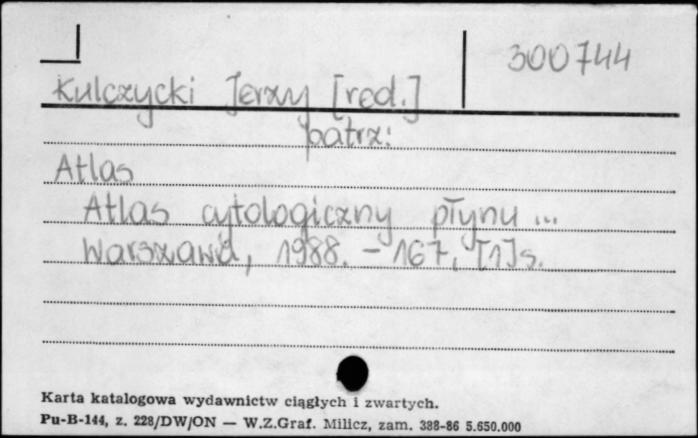 300744
Kulczycki Jerzy [red.]
patrz:
Atlas
Atlas cytologiczny płynu ...
Warszawa, 1988. - 167, [1] s.
Karta katalogowa wydawnictw ciągłych i zwartych.
Pu-B-144, z. 228/DW/ON — W.Z.Graf. Milicz, zam. 388-86 5.650.000